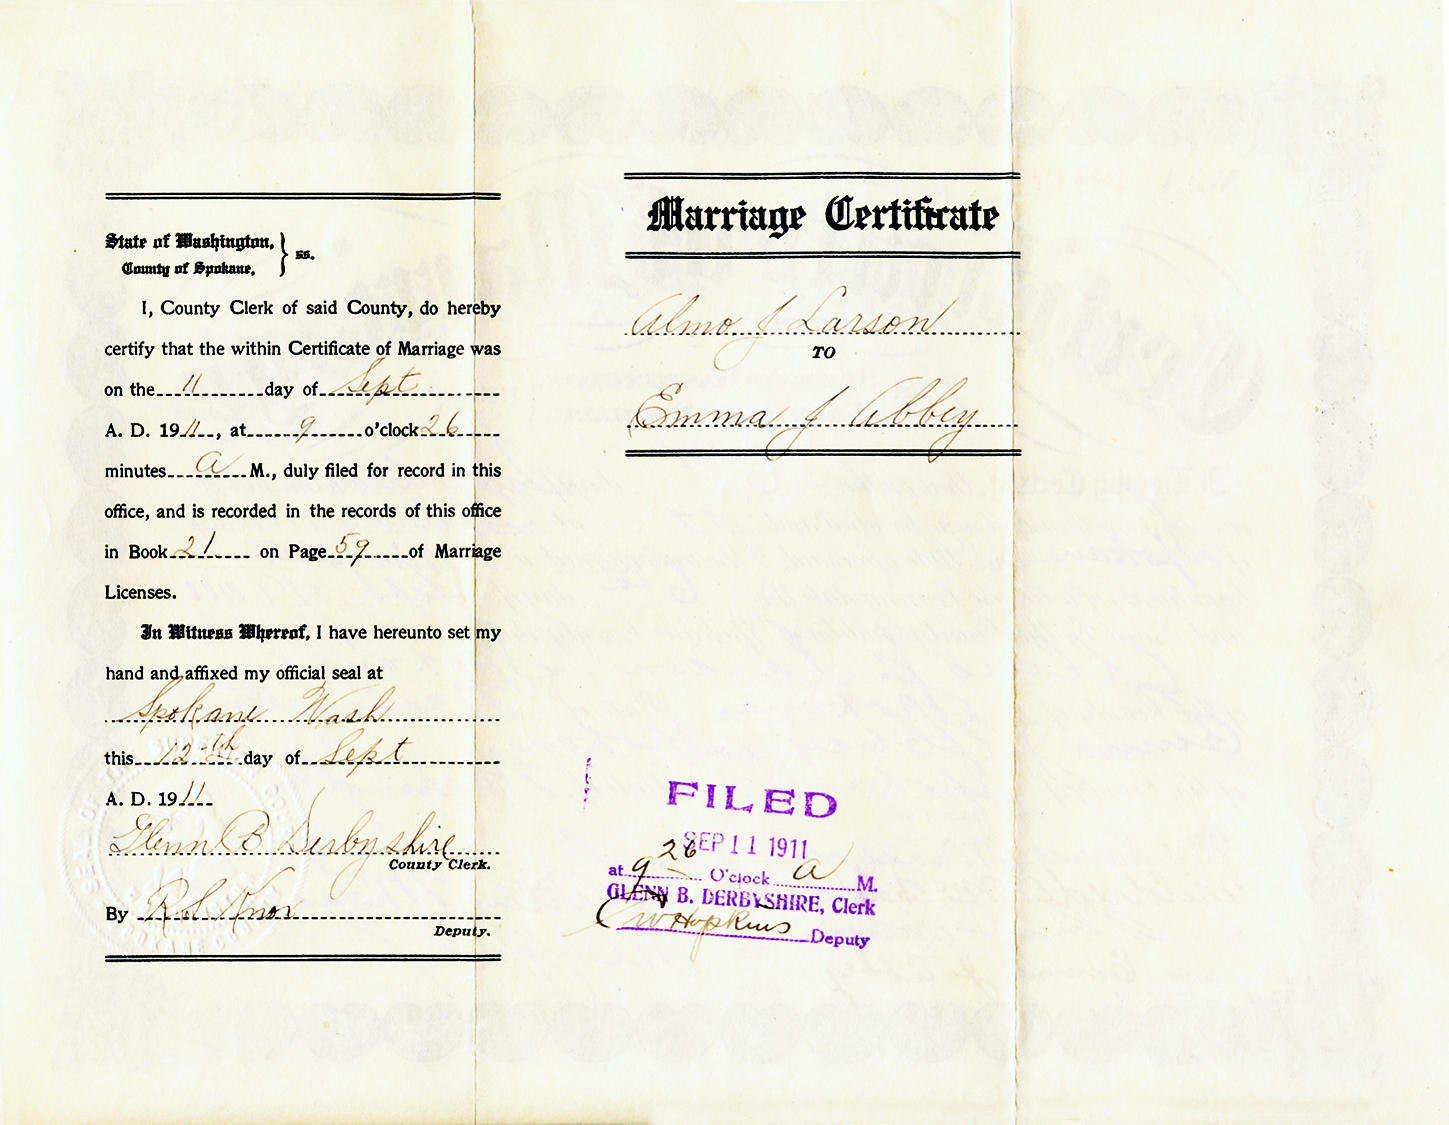 State of Washington, } ss.
County of Spokane,
I, County Clerk of said County, do hereby
certify that the within Certificate of Marriage was
on the 11 day of Sept
A. D. 1911, at 9 o'clock 26
minutes a M., duly filed for record in this
office, and is recorded in the records of this office
in Book 21 on Page 59 of Marriage
Licenses.
In Witness Whereof, I have hereunto set my
hand and affixed my official seal at
Spokane Wash
this 12th day of Sept
A. D. 1911
Glenn B Derbyshire
County Clerk.
By R S Knox
Deputy.
Marriage Certificate
Almo J Larson
TO
Emma J Abbey
FILED
SEP 11 1911
at 9 26 O'clock a M.
GLENN B. DERBYSHIRE, Clerk
E W Hopkins Deputy